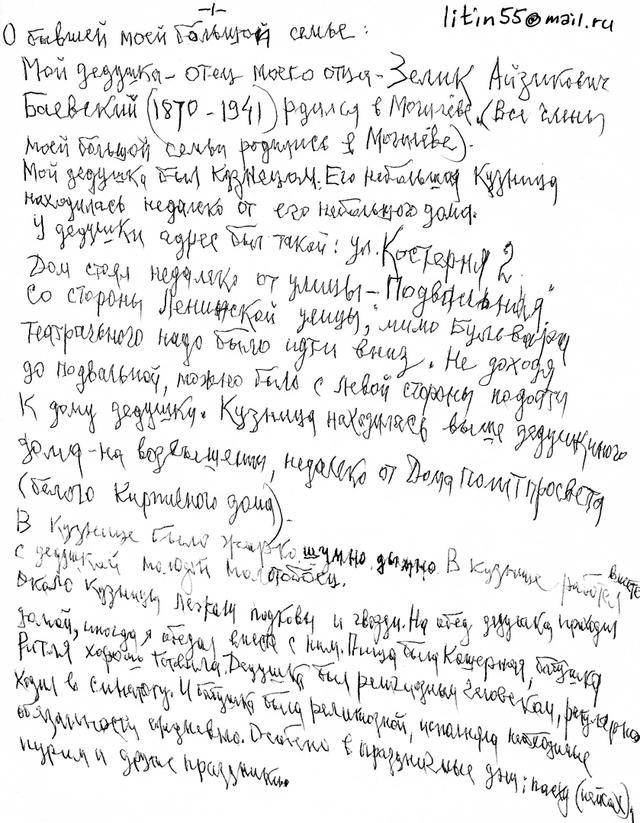 -1-
litin55@mail.ru
О бывшей моей большой семье:
Мой дедушка - отец моего отца - Зелик Айзикович
Баевский (1870-1941) рдился в Могилёве. (Все члены
моей большой семьи родились в Могилёве).
Мой дедушка был кузнецом. Его небольшая Кузница
находилась недалеко от его небольшого дома.
У дедушки адрес был такой: ул. Костерня 2.
Дом стоял недалеко от улицы - "Подвальная"
Со стороны Ленинской улицы, мимо Бульвара
Театрального надо было идти вниз. Не доходя
до подвальной, можно было с левой стороны подойти
К дому дедушки. Кузница находилась выше дедушкиного
дома - на возвышении, недалеко от Дома политпросвета
(белого кирпичного дома).
В Кузнице было жарко шумно, дымно. В кузнице работал вместе
с дедушкой молодой молотобоец.
Около Кузницы лежали подковы и гвозди. На обед дедушка приходил
домой, иногда я обедал вместе с ним. Пища была Кошерная, бабушка
Ритля хорошо готовила. Дедушка был религиозным человеком, регулярно
ходил в синагогу. И бабушка была религиозной, исполняла необходимые
обязанности ежедневно. Особено в праздничные дни: пасху (пейсах),
пурим и другие праздники.